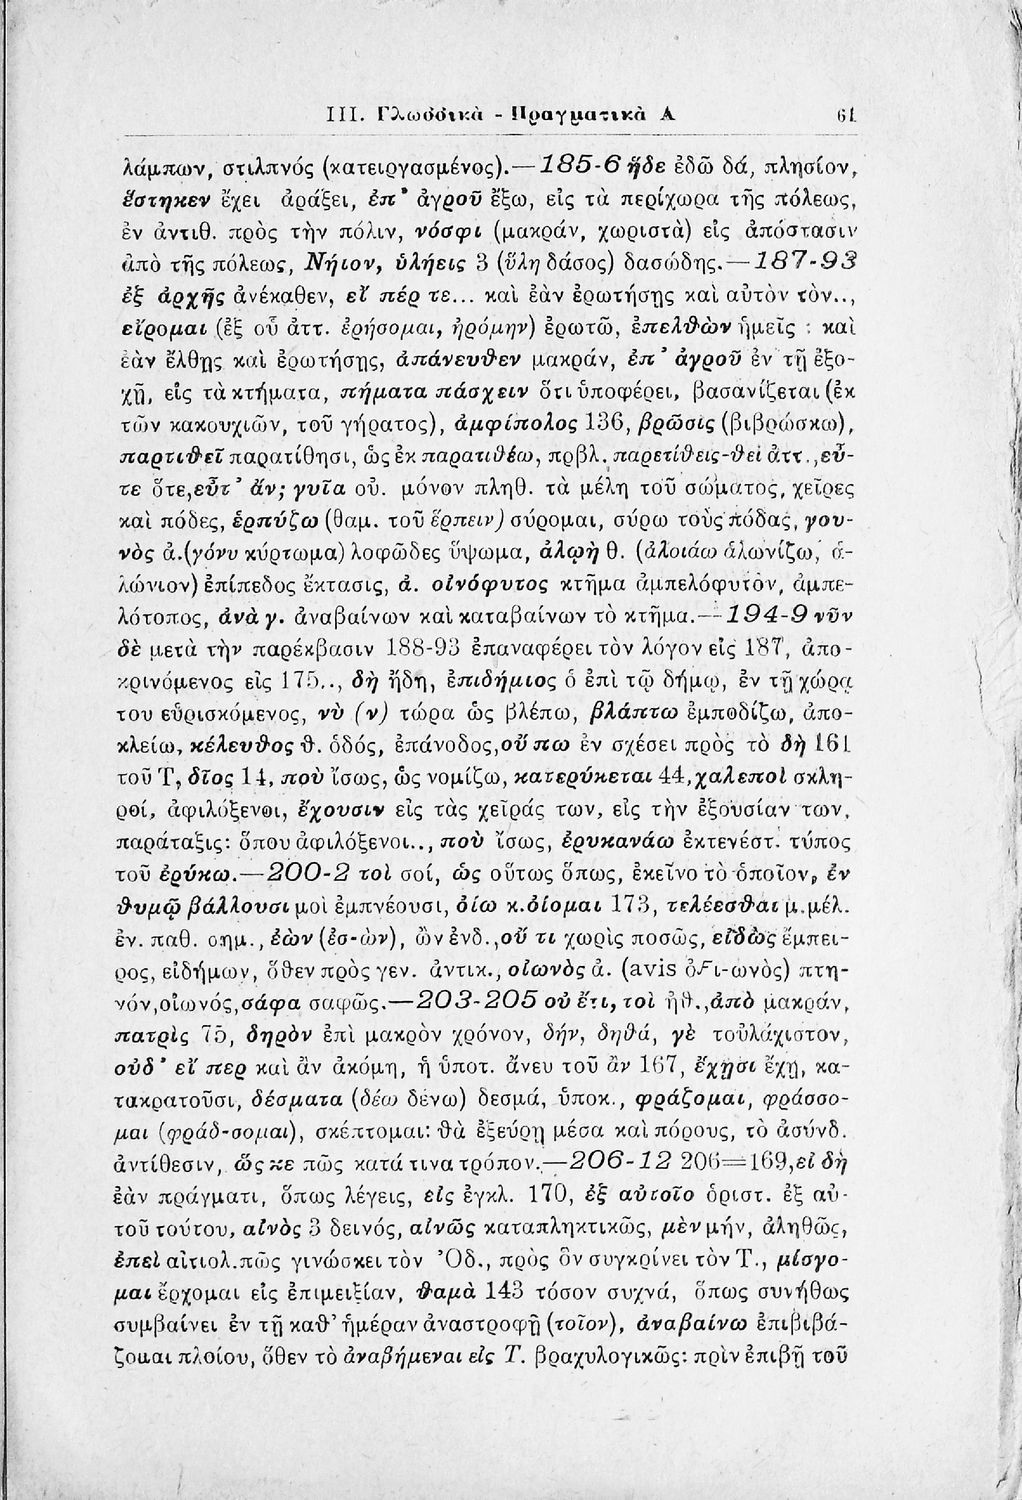 III. Γλωσσικὰ - Πραγματικὰ Α 61
λάμπων, στιλπνός (κατειργασμένος).—185-6 ἥδε ἐδῶ δά, πλησίον,
ἕστηκεν ἔχει ἀράξει, ἐπ᾽ ἀγροῦ ἔξω, εἰς τὰ περίχωρα τῆς πόλεως,
ἐν ἀντιθ. πρὸς τὴν πόλιν, νόσφι (μακράν, χωριστὰ) εἰς ἀπόστασιν
ἀπὸ τῆς πόλεως, Νήιον, ὑλήεις 3 (ὕλη δάσος) δασώδης.—187-93
ἐξ ἀρχῆς ἀνέκαθεν, εἴ πέρ τε... καὶ ἐὰν ἐρωτήσῃς καὶ αὐτὸν τὸν..,
εἴρομαι (ἐξ οὗ ἀττ. ἐρήσομαι, ἠρόμην) ἐρωτῶ, ἐπελθὼν ἡμεῖς : καὶ
ἐὰν ἔλθῃς καὶ ἐρωτήσῃς, ἀπάνευθεν μακράν, ἐπ᾽ ἀγροῦ ἐν τῇ ἐξο-
χῇ, εἰς τὰ κτήματα, πήματα πάσχειν ὅτι ὑποφέρει, βασανίζεται (ἐκ
τῶν κακουχιῶν, τοῦ γήρατος), ἀμφίπολος 136, βρῶσις (βιβρώσκω),
παρτιθεῖ παρατίθησι, ὡς ἐκ παρατιθέω, πρβλ. παρετίθεις-θει ἀττ., εὖ-
τε ὅτε, εὖτ᾽ ἄν; γυῖα οὐ. μόνον πληθ. τὰ μέλη τοῦ σώματος, χεῖρες
καὶ πόδες, ἑρπύζω (θαμ. τοῦ ἕρπειν) σύρομαι, σύρω τοὺς πόδας, γου-
νὸς ἀ.(γόνυ κύρτωμα) λοφῶδες ὕψωμα, ἀλωὴ θ. (ἀλοιάω ἁλωνίζω, ἁ-
λώνιον) ἐπίπεδος ἔκτασις, ἀ. οἰνόφυτος κτῆμα ἀμπελόφυτον, ἀμπε-
λότοπος, ἀνὰ γ. ἀναβαίνων καὶ καταβαίνων τὸ κτῆμα.—194-9 νῦν
δὲ μετὰ τὴν παρέκβασιν 188-93 ἐπαναφέρει τὸν λόγον εἰς 187, ἀπο-
κρινόμενος εἰς 175.., δὴ ἤδη, ἐπιδήμιος ὁ ἐπὶ τῷ δήμῳ, ἐν τῇ χώρᾳ
του εὑρισκόμενος, νὺ (ν) τώρα ὡς βλέπω, βλάπτω ἐμποδίζω, ἀπο-
κλείω, κέλευθος θ. ὁδός, ἐπάνοδος, οὔ πω ἐν σχέσει πρὸς τὸ δὴ 161
τοῦ Τ, δῖος 14, ποὺ ἴσως, ὡς νομίζω, κατερύκεται 44, χαλεποὶ σκλη-
ροί, ἀφιλόξενοι, ἔχουσιν εἰς τὰς χεῖράς των, εἰς τὴν ἐξουσίαν των,
παράταξις: ὅπου ἀφιλόξενοι.., ποὺ ἴσως, ἐρυκανάω ἐκτενέστ. τύπος
τοῦ ἐρύκω.—200-2 τοὶ σοί, ὡς οὕτως ὅπως, ἐκεῖνο τὸ ὁποῖον, ἐν
θυμῷ βάλλουσι μοὶ ἐμπνέουσι, ὀίω κ. ὀίομαι 173, τελέεσθαι μ. μέλ.
ἐν. παθ. σημ., ἐὼν (ἐσ-ὼν), ὢν ἐνδ., οὔ τι χωρὶς ποσῶς, εἰδὼς ἔμπει-
ρος, εἰδήμων, ὅθεν πρὸς γεν. ἀντικ., οἰωνὸς ἀ. (avis ὀϜι-ωνὸς) πτη-
νόν, οἰωνός, σάφα σαφῶς.—203-205 οὐ ἔτι, τοὶ ἠθ., ἀπὸ μακράν,
πατρὶς 75, δηρὸν ἐπὶ μακρὸν χρόνον, δήν, δηθά, γὲ τοὐλάχιστον,
οὐδ᾽ εἴ περ καὶ ἂν ἀκόμη, ἡ ὑποτ. ἄνευ τοῦ ἂν 167, ἔχῃσι ἔχῃ, κα-
τακρατοῦσι, δέσματα (δέω δένω) δεσμά, ὑποκ., φράζομαι, φράσσο-
μαι (φράδ-σομαι), σκέπτομαι: θὰ ἐξεύρῃ μέσα καὶ πόρους, τὸ ἀσύνδ.
ἀντίθεσιν, ὥς κε πῶς κατά τινα τρόπον.—206-12 206=169, εἰ δὴ
ἐὰν πράγματι, ὅπως λέγεις, εἰς ἐγκλ. 170, ἐξ αὐτοῖο ὁριστ. ἐξ αὐ-
τοῦ τούτου, αἰνὸς 3 δεινός, αἰνῶς καταπληκτικῶς, μὲν μήν, ἀληθῶς,
ἐπεὶ αἰτιολ. πῶς γινώσκει τὸν Ὀδ., πρὸς ὃν συγκρίνει τὸν Τ., μίσγο-
μαι ἔρχομαι εἰς ἐπιμειξίαν, θαμὰ 143 τόσον συχνά, ὅπως συνήθως
συμβαίνει ἐν τῇ καθ᾽ ἡμέραν ἀναστροφῇ (τοῖον), ἀναβαίνω ἐπιβιβά-
ζομαι πλοίου, ὅθεν τὸ ἀναβήμεναι εἰς Τ. βραχυλογικῶς: πρὶν ἐπιβῇ τοῦ